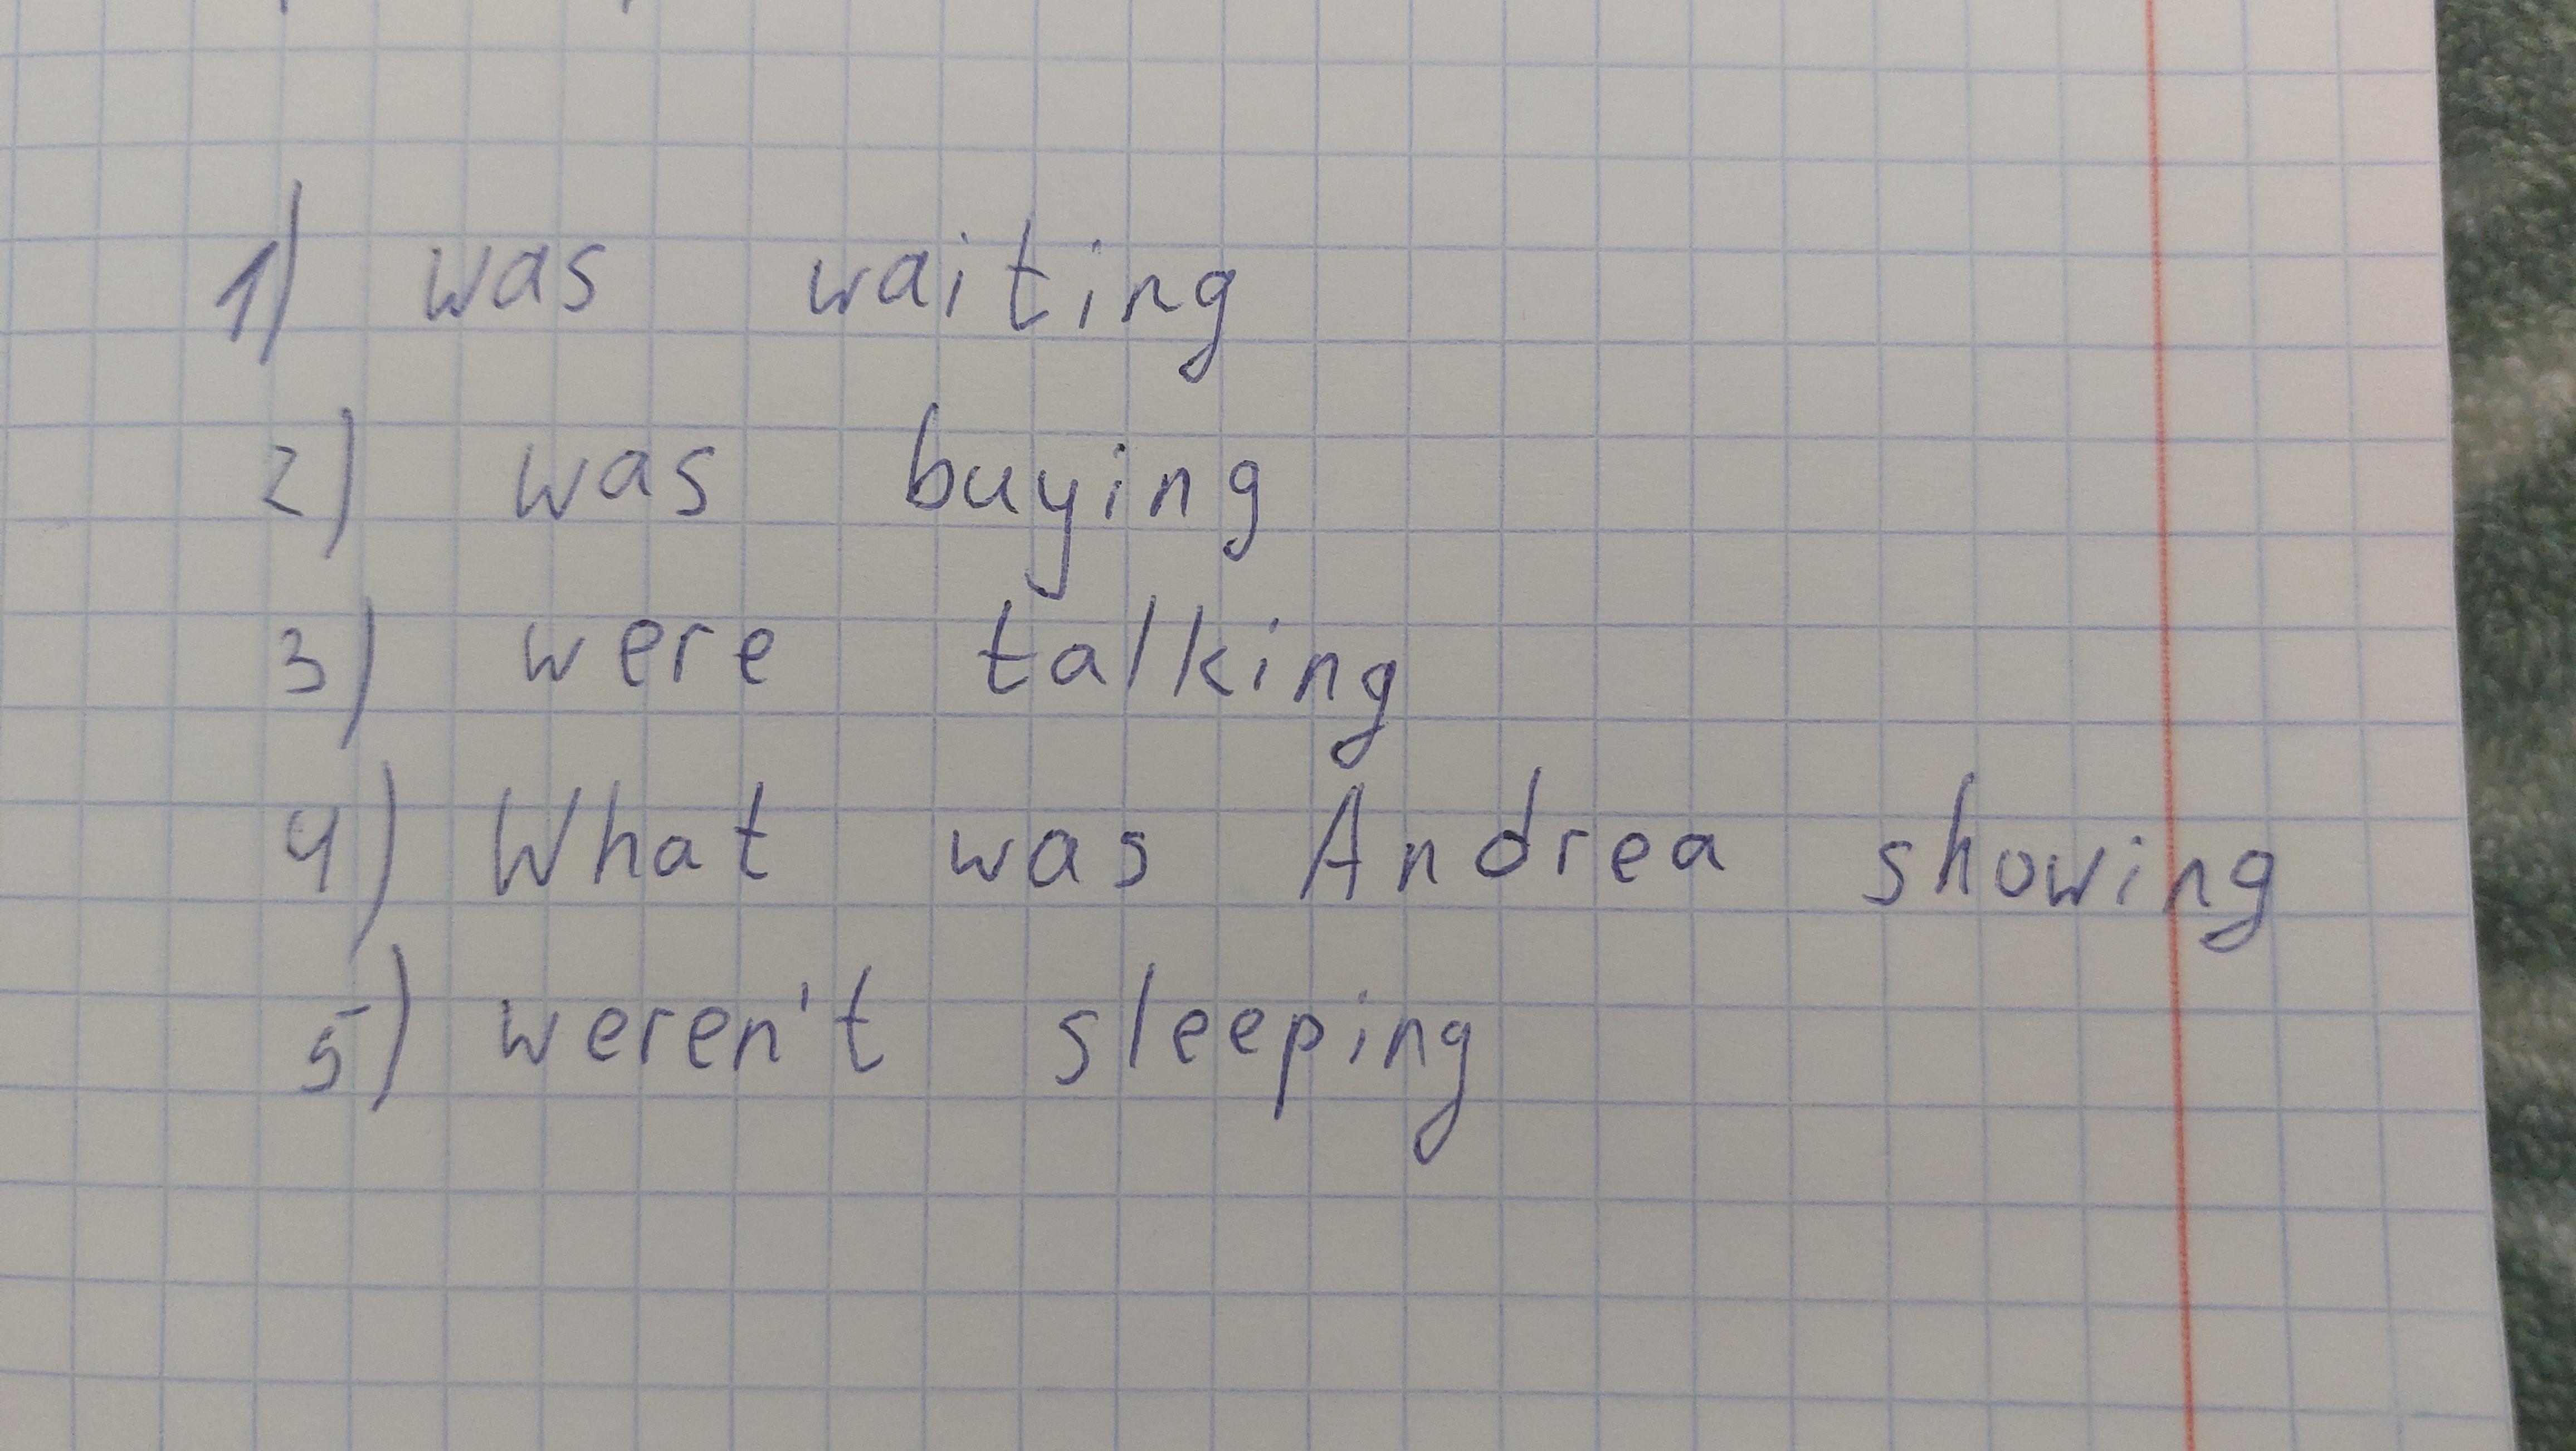 1) was waiting
2) was buying
3) were talking
4) What was Andrea showing
5) weren't sleeping